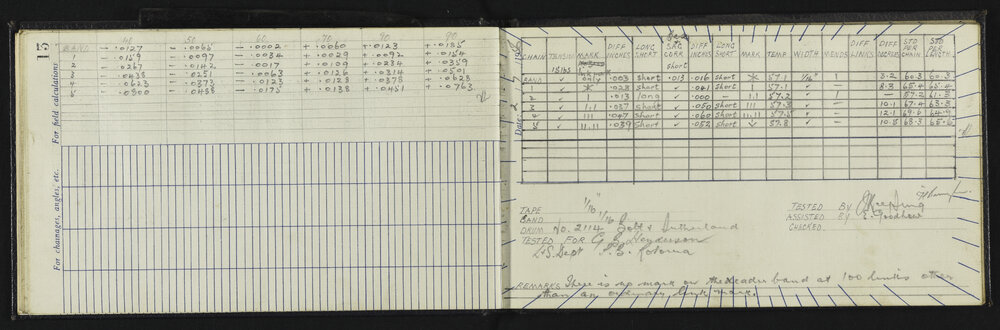 15
For field calculations
For chainages, angles, etc.
40 50 60 70 80 90
BAND - .0127 - .0065 - .0002 + .0060 + .0123 + .0185
1 - .0159 - .0097 - .0034 + .0029 + .0092 + .0154
2 - .0267 - .0142 - .0017 + .0109 + .0234 + .0359
3 - .0438 - .0251 - .0063 + .0126 + .0314 + .0501
4 - .0623 - .0373 - .0123 + .0128 + .0378 + .0628
5 - .0800 - .0488 - .0175 + .0138 + .0451 + .0763
Date:
CHAIN TENSION MARK DIFF INCHES LONG SHORT SAG CORR short DIFF INCHES LONG SHORT MARK TEMP WIDTH MENDS DIFF LINKS DIFF DEGREES STD PER CHAIN STD PER LENGTH
15 lbs
BAND ✓ only .003 short .013 .016 short * 57.1 1/16" 3.2 60.3 60.3
1 ✓ * .028 short ✓ .041 short 1 57.1 ✓ — 8.3 65.4 65.4
2 ✓ 1 .013 long ✓ — 11 57.2 ✓ — — 57.2 61.3
3 ✓ 11 .037 short ✓ .050 short 111 57.3 ✓ — 10.1 67.4 63.3
4 ✓ 111 .047 short ✓ .060 short 11.11 57.5 ✓ — 12.1 69.6 64.9
5 ✓ 11.11 .039 short ✓ .052 short 57.8 ✓ — 10.5 68.3 65.6
TAPE 1/16"
BAND 1/16
DRUM No. 2114 Bolt & Sutherland
TESTED FOR G. E. Henderson
L&S. Dept
TESTED BY
ASSISTED BY S. Goodhew
CHECKED.
REMARKS There is no mark on the leader band at 100 links other
than an ordinary link mark.